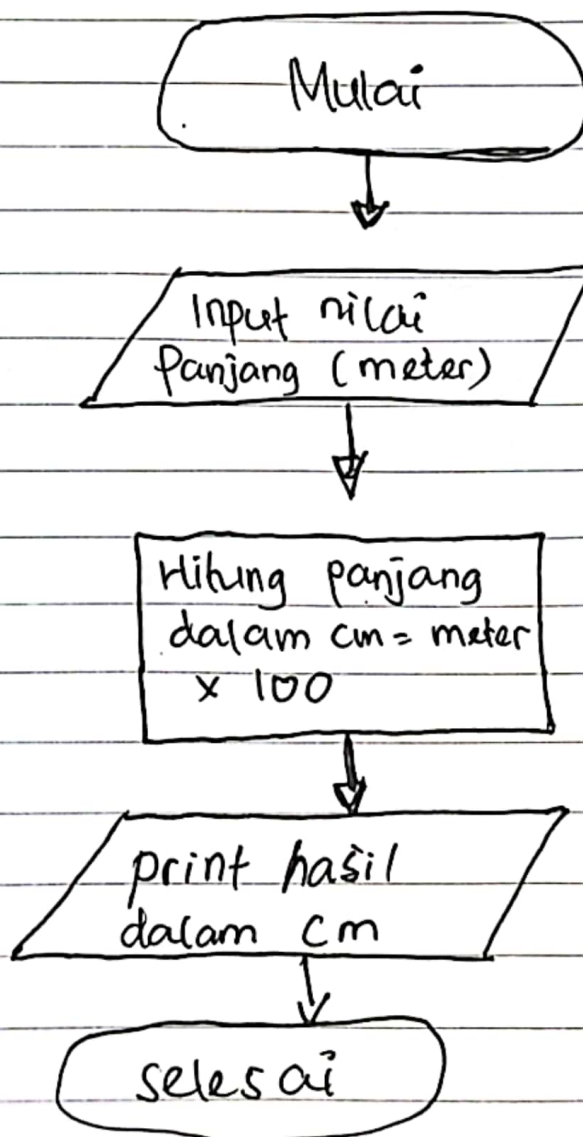 Mulai
Input nilai
Panjang (meter)
Hitung panjang
dalam cm = meter
x 100
print hasil
dalam cm
selesai